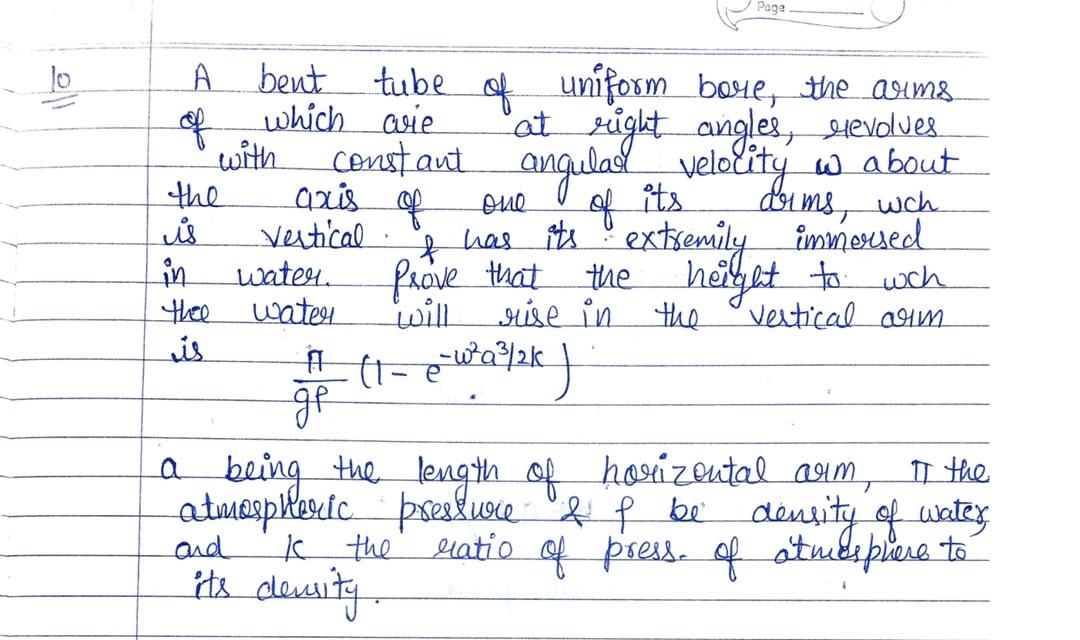 Page
10
A bent tube of uniform bore, the arms
of which are at right angles, revolves
with constant angular velocity ω about
the axis of one of its arms, wch
is vertical & has its extremily immersed
in water. Prove that the height to wch
the water will rise in the vertical arm
is Π/gρ (1 - e^{-ω²a³/2k})
a being the length of horizontal arm, Π the
atmospheric pressure & ρ be density of water,
and K the ratio of press. of atmosphere to
its density.